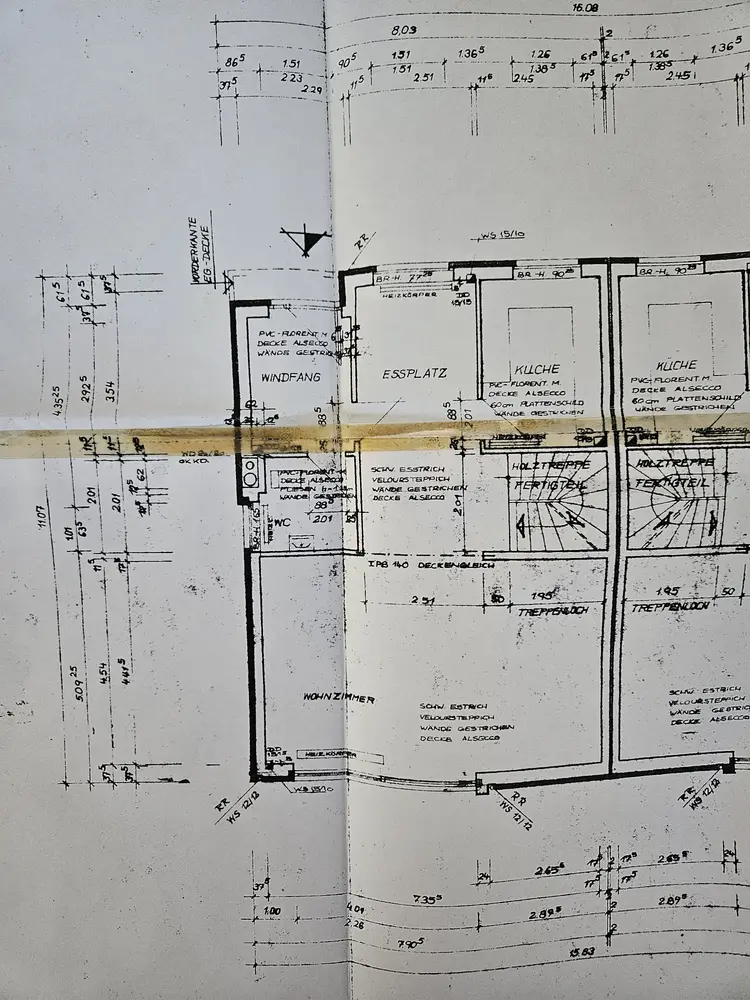 16.08
8.03
2
86⁵
1.51
90⁵
1.51
1.36⁵
1.26
61⁵
2
61⁵
1.26
1.36⁵
37⁵
2.23
2.29
11⁵
1.51
2.51
11⁵
2.45
1.38⁵
17⁵
17⁵
1.38⁵
2.45
VORDERKANTE
EG.-DECKE
RR
WS 15/10
BR-H. 77²⁵
HEIZKÖRPER
DD
15/15
BR-H. 90²⁵
BR-H. 90²⁵
PVC-FLORENT M.
DECKE ALSECCO
WÄNDE GESTRICH
WINDFANG
ESSPLATZ
KÜCHE
PVC-FLORENT. M.
DECKE ALSECCO
60cm PLATTENSCHILD
WÄNDE GESTRICHEN
KÜCHE
PVC-FLORENT. M.
DECKE ALSECCO
60cm PLATTENSCHILD
WÄNDE GESTRICHEN
61⁵
61⁵
37⁵
37⁵
4.35²⁵
2.92⁵
3.54
62
88⁵
88⁵
2.01
HEIZKÖRPER
PVC-FLORENT M
DECKE ALSECCO
WÄNDE GESTRICHEN
88⁵
2.01
WC
BR-H. 165
SCHW. ESSTRICH
VELOURSTEPPICH
WÄNDE GESTRICHEN
DECKE ALSECCO
2.01
HOLZTREPPE
FERTIGTEIL
HOLZTREPPE
FERTIGTEIL
11.07
1.01
63⁵
2.01
2.01
62
11⁵
17⁵
I.PB 140 DECKENGLEICH
2.51
50
1.95
TREPPENLOCH
1.95
50
TREPPENLOCH
5.09²⁵
4.54
4.41⁵
37⁵
37⁵
WOHNZIMMER
SCHW. ESTRICH
VELOURSTEPPICH
WÄNDE GESTRICHEN
DECKE ALSECCO
SCHW. ESTRICH
VELOURSTEPPICH
WÄNDE GESTRICH
DECKE ALSECCO
DD
HEIZKÖRPER
WS 15/10
RR
WS 12/12
RR
WS 12/12
RR
WS 12/12
37⁵
7.35⁵
24
2.65⁵
17⁵
17⁵
17⁵
17⁵
2.65⁵
24
1.00
4.01
2.26
2.89⁵
2
2.89⁵
7.90⁵
2
15.83